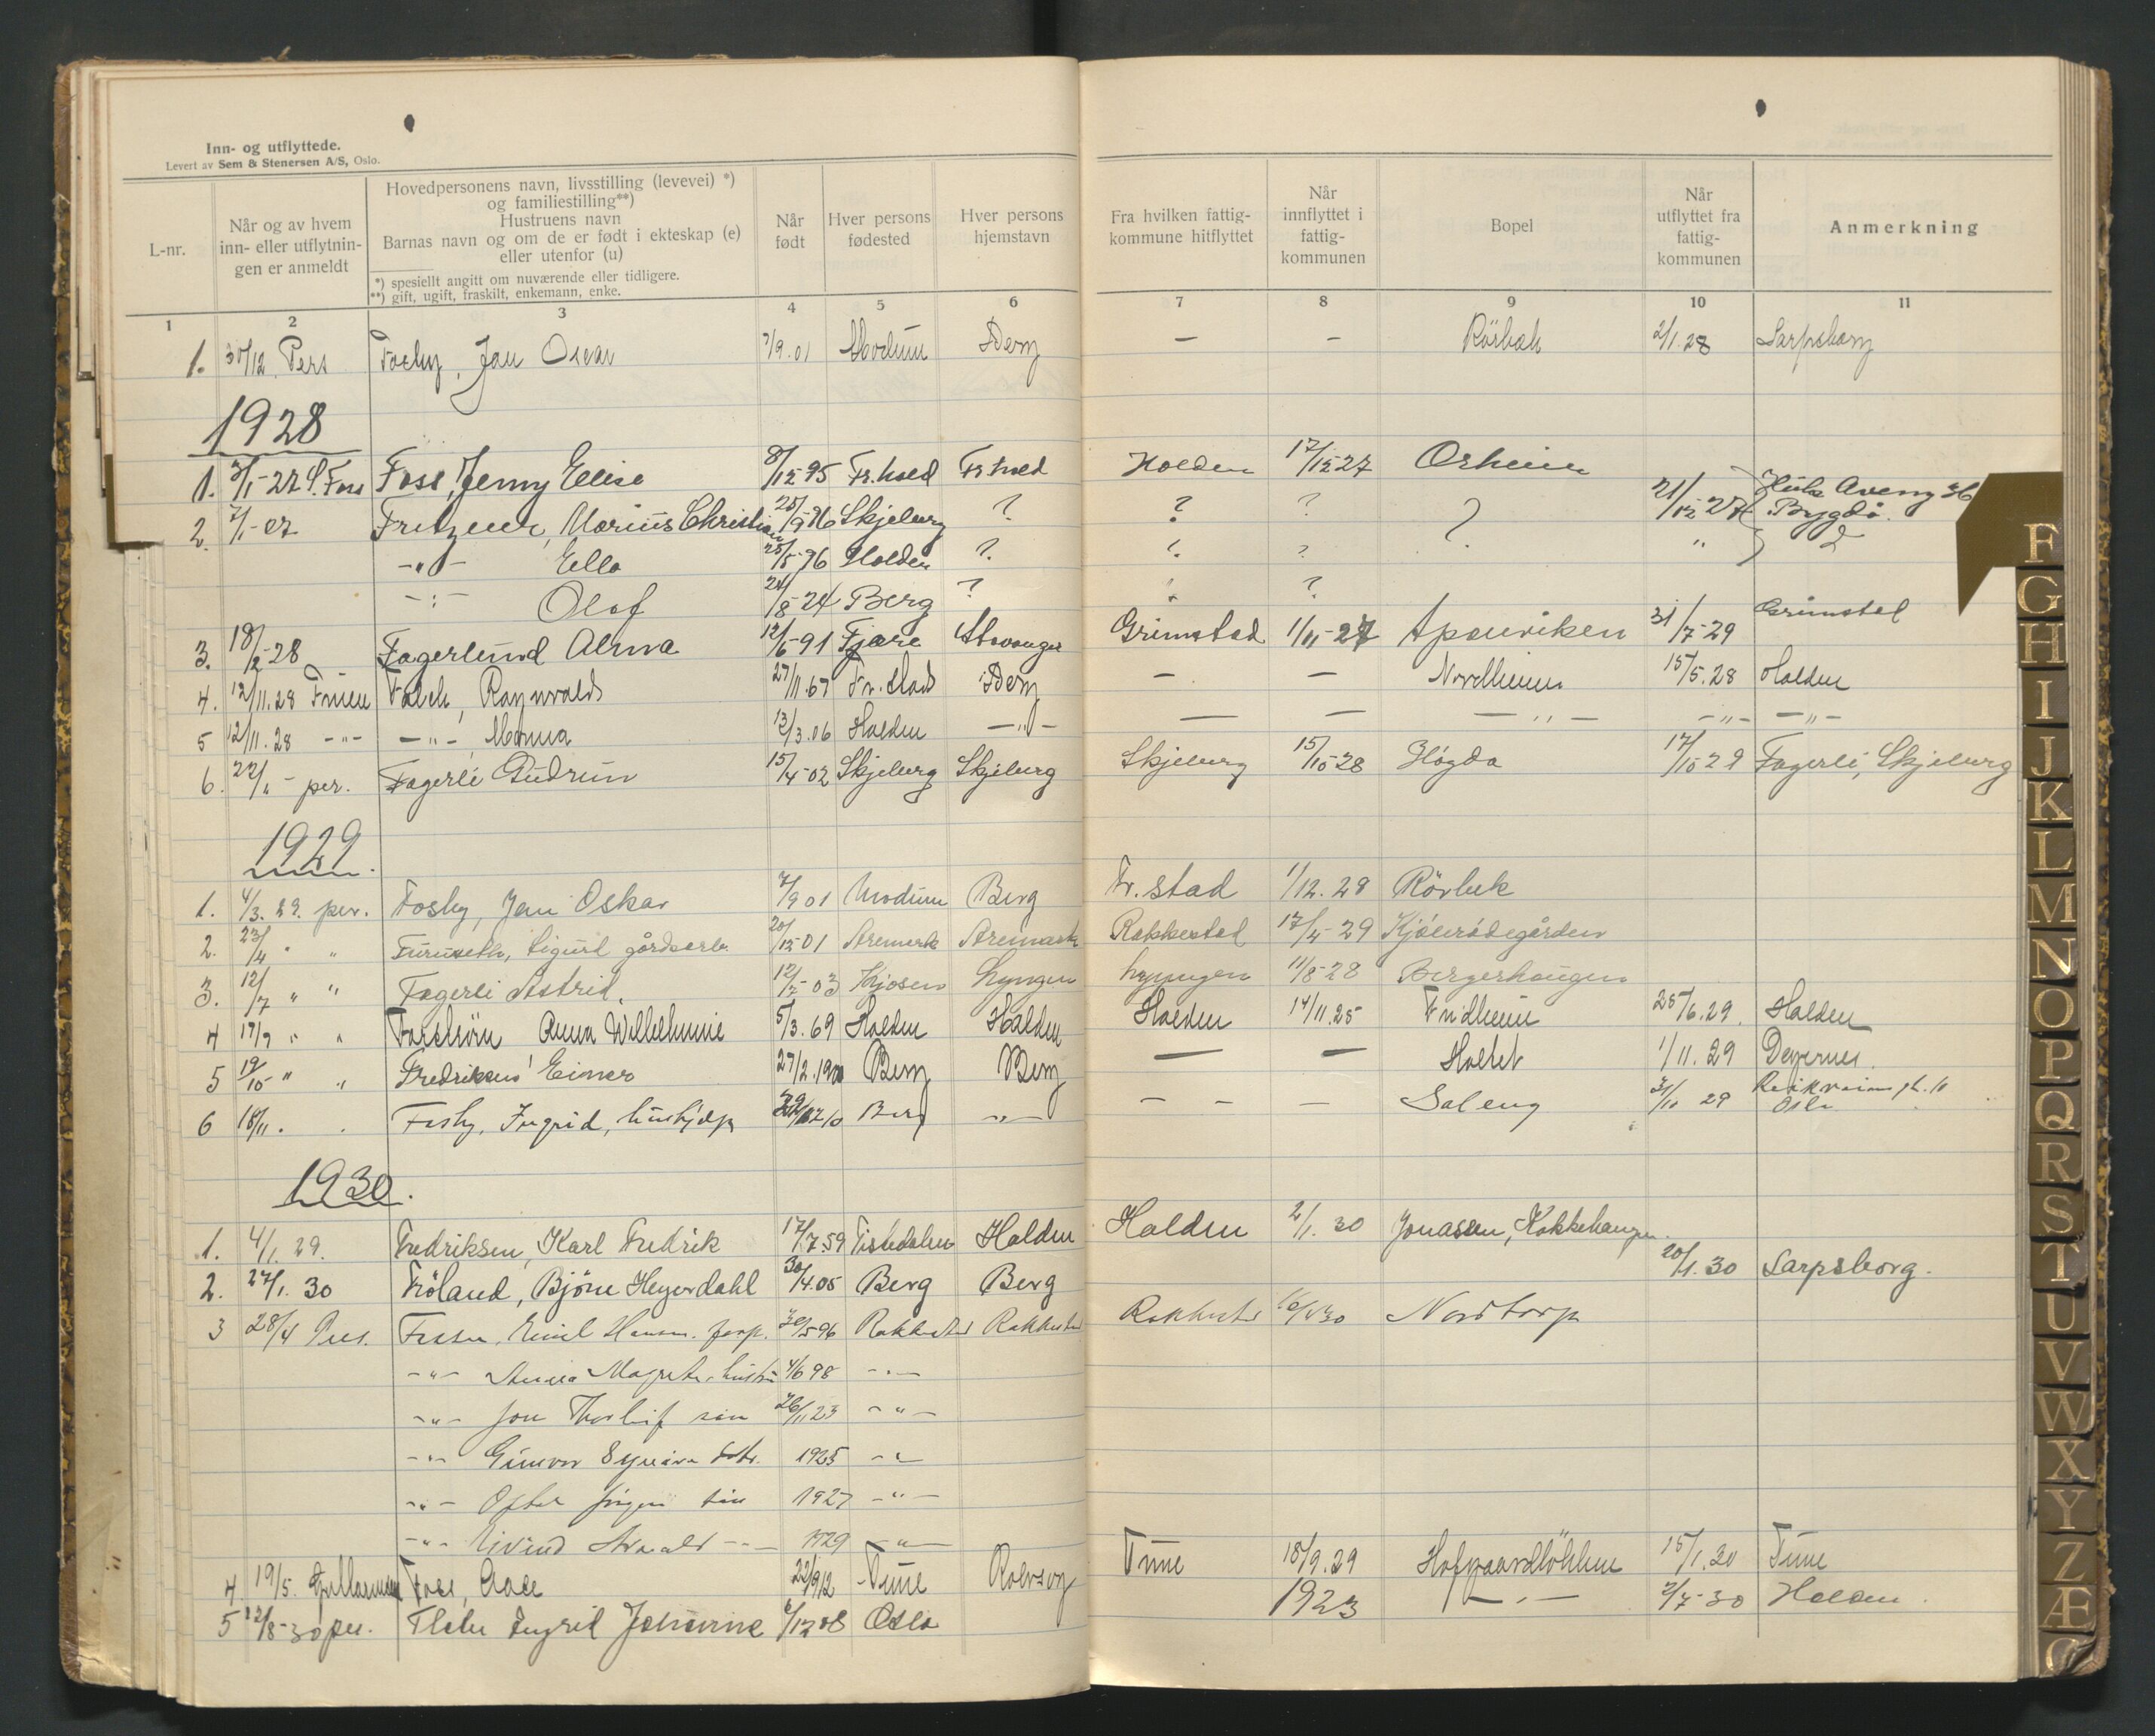 Inn- og utflyttede.
Levert av Sem & Stenersen A/S, Oslo.
L-nr.
Når og av hvem
inn- eller utflytnin-
gen er anmeldt
Hovedpersonens navn, livsstilling (levevei) *)
og familiestilling**)
Hustruens navn
Barnas navn og om de er født i ekteskap (e)
eller utenfor (u)
*) spesiellt angitt om nuværende eller tidligere.
**) gift, ugift, fraskilt, enkemann, enke.
Når
født
Hver persons
fødested
Hver persons
hjemstavn
Fra hvilken fattig-
kommune hitflyttet
Når
innflyttet i
fattig-
kommunen
Bopel
Når
utflyttet fra
fattig-
kommunen
Anmerkning
1 2 3 4 5 6 7 8 9 10 11
1. 30/12 Pers Fosby, Jan Oscar 7/9.01 Modum Berg — — Rörbæk 2/1.28 Sarpsborg
1928
1. 3/1-27 Foss Foss, Jenny Elise 8/12-95 Fr.hald Fr.hald Halden 17/12-27 Orheim
2. 7/1-27 Fritzner, Marius Christian Skjeberg ? ? ? ? 21/12-27 Bygdö
-"- Ella 25/5-96 Halden ? ? ? "
-"- Olaf 24/8-24 Berg ? ?
3. 18/2-28 Fagerlund Alma 12/6-91 Fjære Stavanger Grimstad 1/11-27 31/7-29 Grimstad
4. 12/11.28 Falch, Ragnvald 27/11.67 Fr.stad Berg — — Nordheim 15/5.28 Halden
5 12/11.28 -"- -"-, 12/3.06 Halden -"- — — -"- -"- -"-
6. 22/11- per. Fagerli Gudrun 15/4-02 Skjeberg Skjeberg Skjeberg 15/10-28 Högda 17/10-29 Fagerli, Skjeberg
1929.
1. 4/3.29. per. Fosby, Jan Oskar 7/9 01 Modum Berg Fr.stad 1/12.28 Rörbek
2. 23/4 " " Furuseth, Sigurd gårdsarb. 20/12-01 Aremark Aremark Rakkestad 17/4-29 Kjölerödegården
3. 12/7 " " Fagerli Astrid. 12/7-03 Kjosen Lyngen Lyngen 11/8-28 Bergerhaugen
4 17/9 " " Anna Wilhelmine 5/3.69 Halden Halden Halden 14/11.25 Fridheim 25/6.29. Halden
5 19/10 " " Fredriksen Einar 27/2.1900 Berg Berg — — Holtet 1/11.29 Degernes.
6 18/11. . Fosby, Ingrid, hushjelp Berg -"- - - — Saleng 29 Oslo
1930.
1. 4/1.29. Fredriksen, Karl Fredrik 17/7.59 Tistedalen Halden Halden 2/1.30 Jonassen, Kokkehaugen.
2. 27/1.30 Fröland, Björn Heyerdahl 30/4.05 Berg Berg 20/1.30 Sarpsborg.
3 28/4 Pers. Emil Rakkestad Rakkestad Rakkestad Nordtorp
-"- Anna hustru 4/6 98 -"-
-"- Jon Thorleif sön 26/11 23 -"-
-"- Gunvor dtr. 1925 -"-
-"- sön 1927 -"-
-"- Eivind -"- 1929 -"-
4. 19/5. Foss, Aase 22/9 12 Tune Rolvsøy Tune 18/9.29 15/1.30 Tune
5 12/8-30 per. Ingrid Johanne 6/12 08 Oslo 1923 -"- 2/7-30 Halden.
F
G
H
I
J
K
L
M
N
O
P
Q
R
S
T
U
V
W
X
Y
Z
Æ